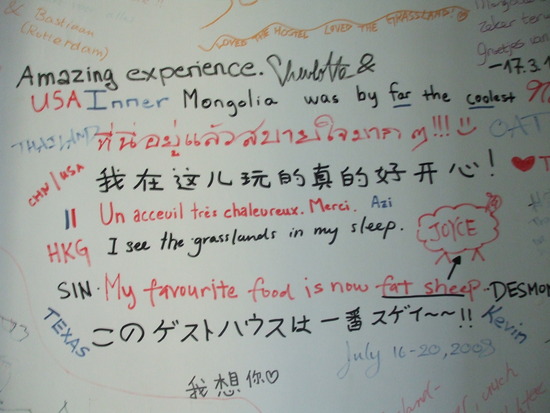 & Bastiaan
(Rotterdam)
LOVED THE HOSTEL LOVED THE GRASSLAND!
zeker
-17.3.1
Amazing experience. Charlotte &
USA Inner Mongolia was by far the coolest
THAILAND ที่นี่อยู่แล้วสบายใจมาก ๆ!!!
CHN/USA 我在这儿玩的真的好开心!
Un acceuil très chaleureux. Merci. Azi
HKG I see the grasslands in my sleep.
JOYCE
SIN. My favourite food is now fat sheep. DESMO
TEXAS このゲストハウスは一番スゲイ~~!! Kevin
July 16-20, 2009
我想你♡